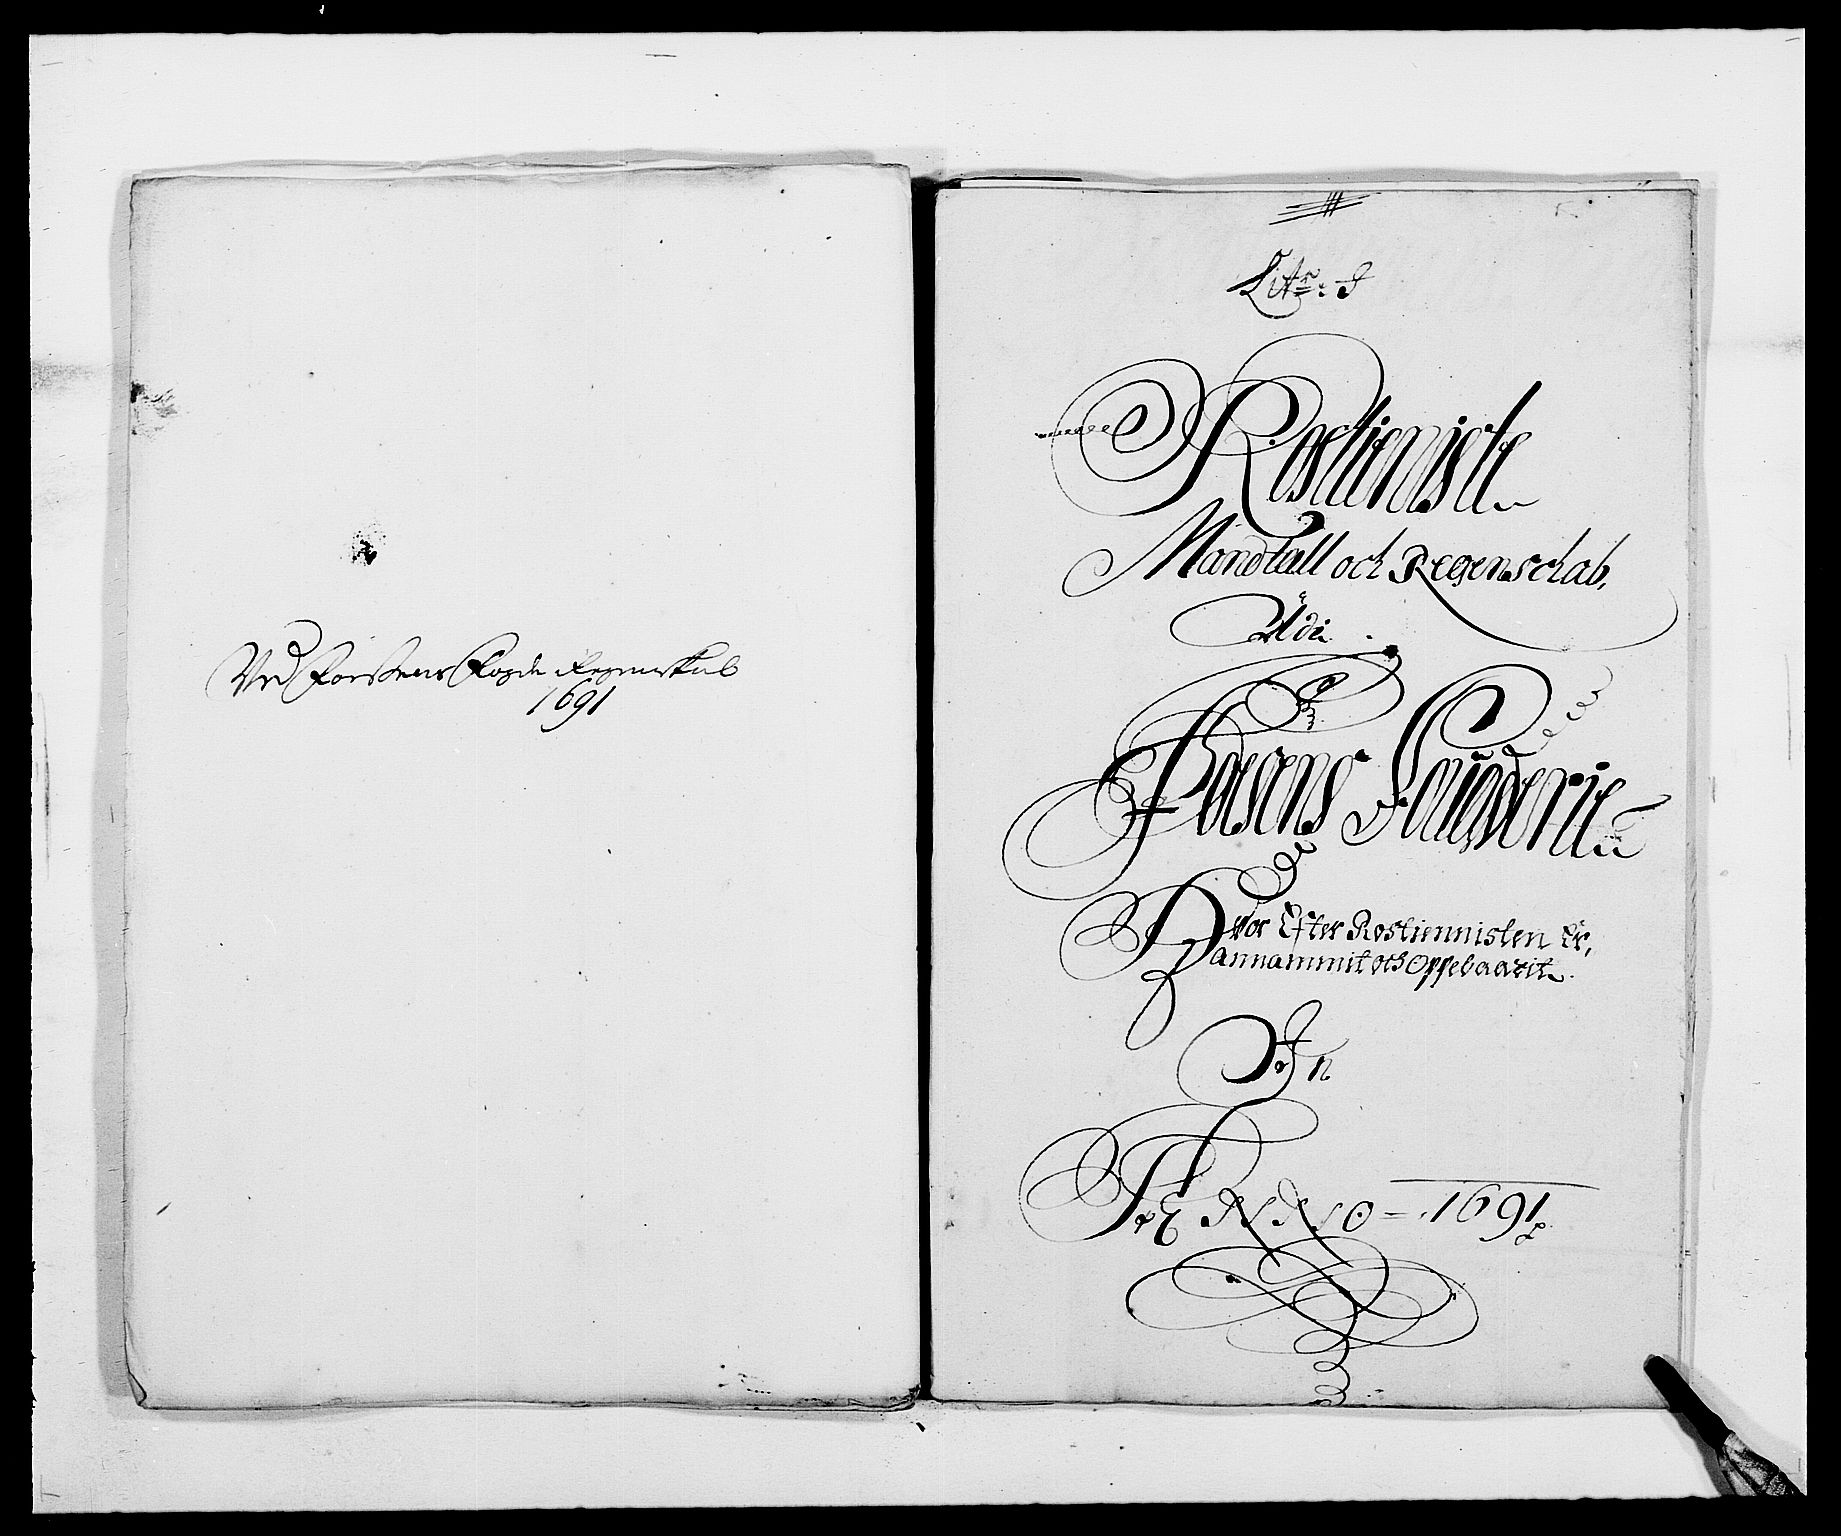 Ved Foessens Fogde Regenskab
1691
Litr: J
Rostieniste
Mandtall och Regenschab,
Udi
Foesens Foùderie
Hvor Efter Rostiennisten Er,
annammit och Oppebaarit
In
ANNO = 1691